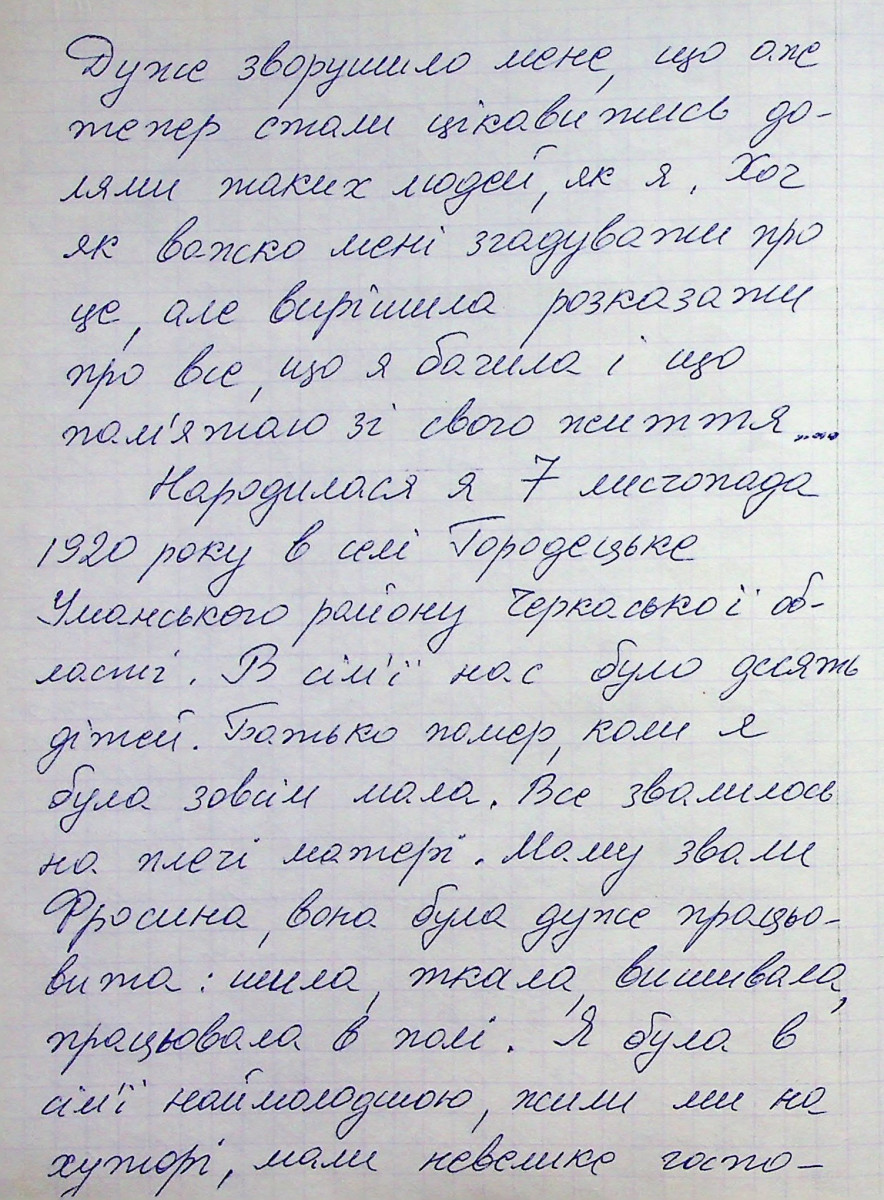 Дуже зворушило мене, що аж
тепер стали цікавитись до-
лями таких людей, як я. Хоч
як важко мені згадувати про
це, але вирішила розказати
про все, що я бачила і що
пам'ятаю зі свого життя....
Народилася я 7 листопада
1920 року в селі Городецьке
Уманського району Черкаської об-
ласті. В сім'ї нас було десять
дітей. Батько помер, коли я
була зовсім мала. Все звалилось
на плечі матері. Маму звали
Фросина, вона була дуже працьо-
вита: шила, ткала, вишивала,
працювала в полі. Я була в
сім'ї наймолодшою, жили ми на
хуторі, мали невелике госпо-